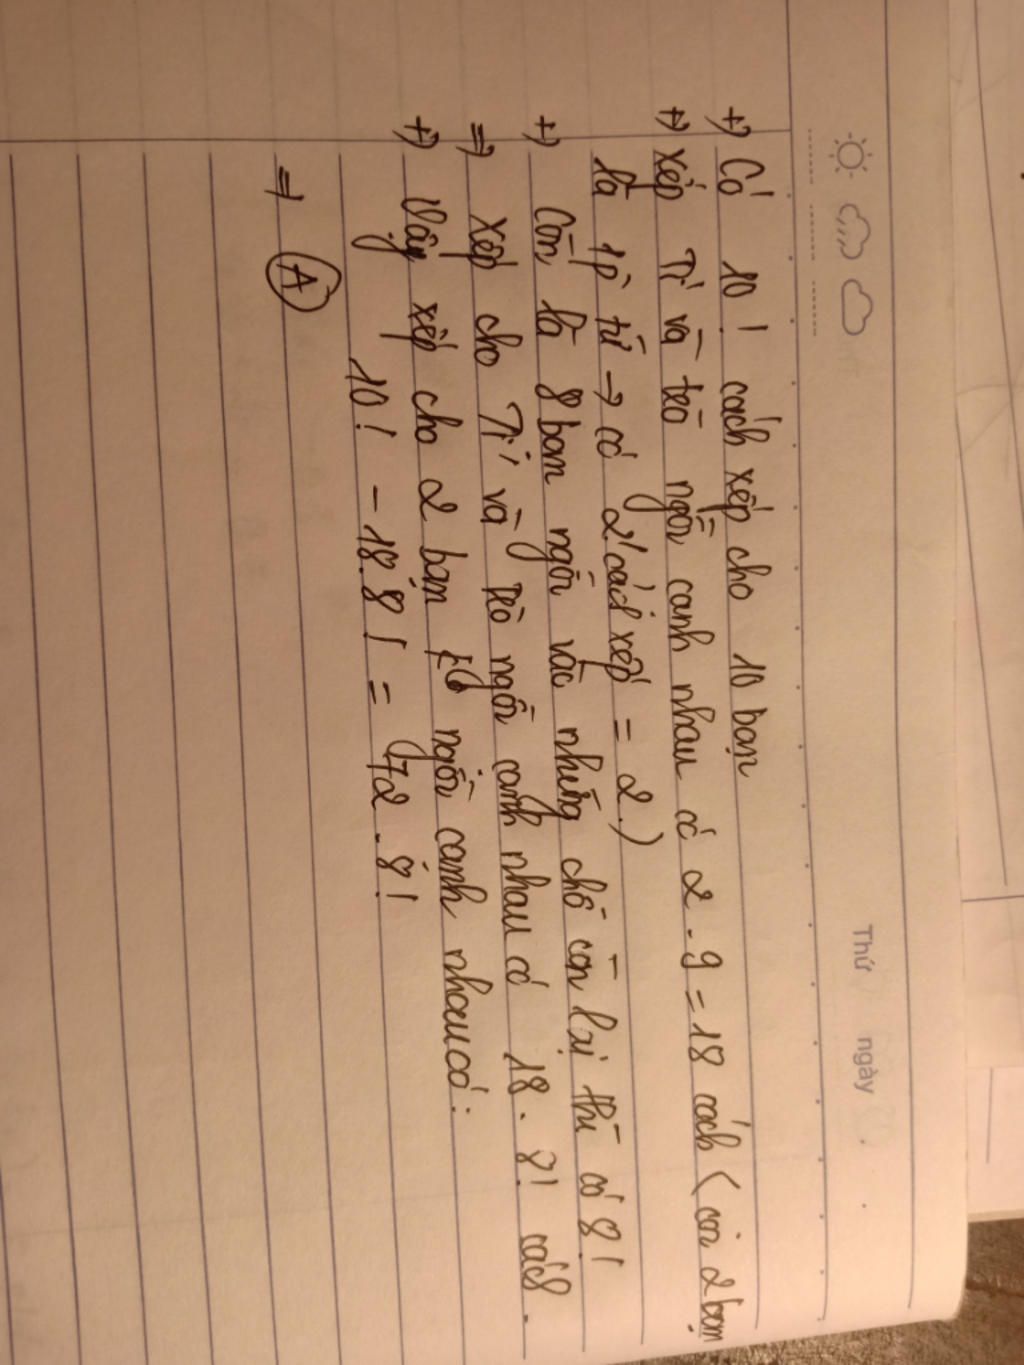 Thứ ngày
+) Có 10! cách xếp cho 10 bạn
+) xếp Tí và tèo ngồi cạnh nhau có 2.9 = 18 cách (coi 2 bạn
là 1 p tử → có 2! cách xếp = 2.)
+) Còn là 8 bạn ngồi vào những chỗ còn lại thì có 8!
=> xếp cho Tí và tèo ngồi cạnh nhau có 18.8! cách.
+) Vậy xếp cho 2 bạn ngồi cạnh nhau có:
10! - 18.8! = 72.8!
=> A